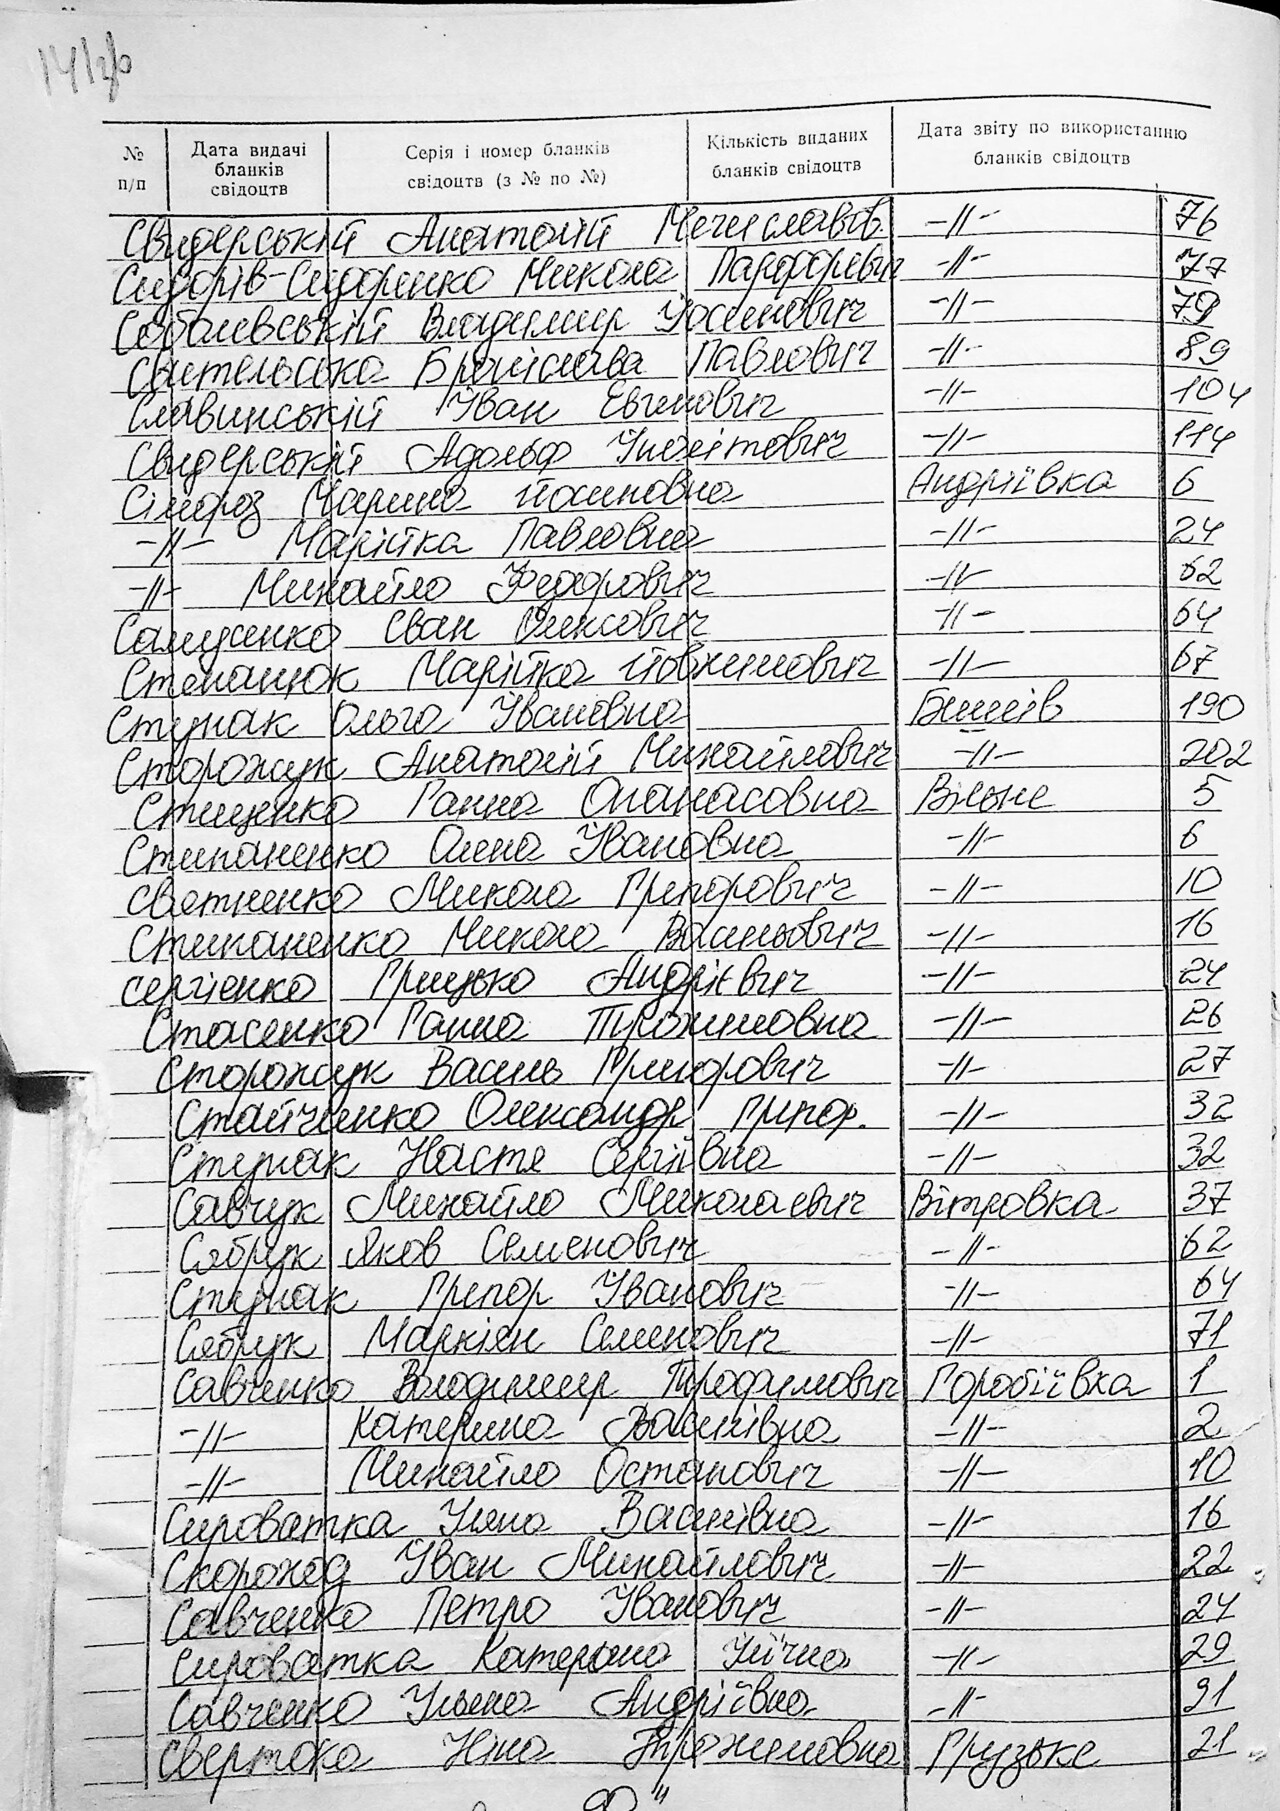 № п/п Дата видачі бланків свідоцтв Серія і номер бланків свідоцтв (з № по №) Кількість виданих бланків свідоцтв Дата звіту по використанню бланків свідоцтв
Свидерський Анатолій Мечиславов. -//- 76
Сидорів-Сидоренко Микола Парфорович -//- 77
Соболевський Владимир Йосипович -//- 79
Свительська Броніслава Павлович -//- 89
Славинський Іван Евгенович -//- 104
Свидерський Адольф Іполітович -//- 114
Сімороз Марина Йосиповна Андріївка 6
-//- Марійка Павловна -//- 24
-//- Михайло Федорович -//- 62
Самусенко Єван Олексович -//- 64
Степанюк Марійка Йовхимович -//- 67
Ступак Ольга Івановна Бишів 190
Сторожук Анатолій Михайлович -//- 202
Стиценко Ганна Опанасовна Вільне 5
Стипаненко Олена Івановна -//- 6
Святненко Микола Григорович -//- 10
Стипаненко Микола Васильович -//- 16
Сергієнко Грицько Андрієвич -//- 24
Стасенко Ганна Трохимовна -//- 26
Сторожук Василь Григорович -//- 27
Стайченко Олександр Григор. -//- 32
Ступак Настя Сергіївна -//- 32
Савчук Михайло Миколаевич Вітровка 37
Сябрук Яков Семенович -//- 62
Ступак Григор Іванович -//- 64
Сябрук Маркіян Семенович -//- 71
Савченко Володимир Трофимович Горобіївка 1
-//- Катерина Василівна -//- 2
-//- Михайло Остапович -//- 10
Сироватка Уляна Василівна -//- 16
Скороход Іван Михайлович -//- 22
Савченко Петро Іванович -//- 24
Сироватка Катерина Іллічна -//- 29
Савченко Ульяна Андріївна -//- 31
Свертока Ніна Трохимовна Грузьке 21